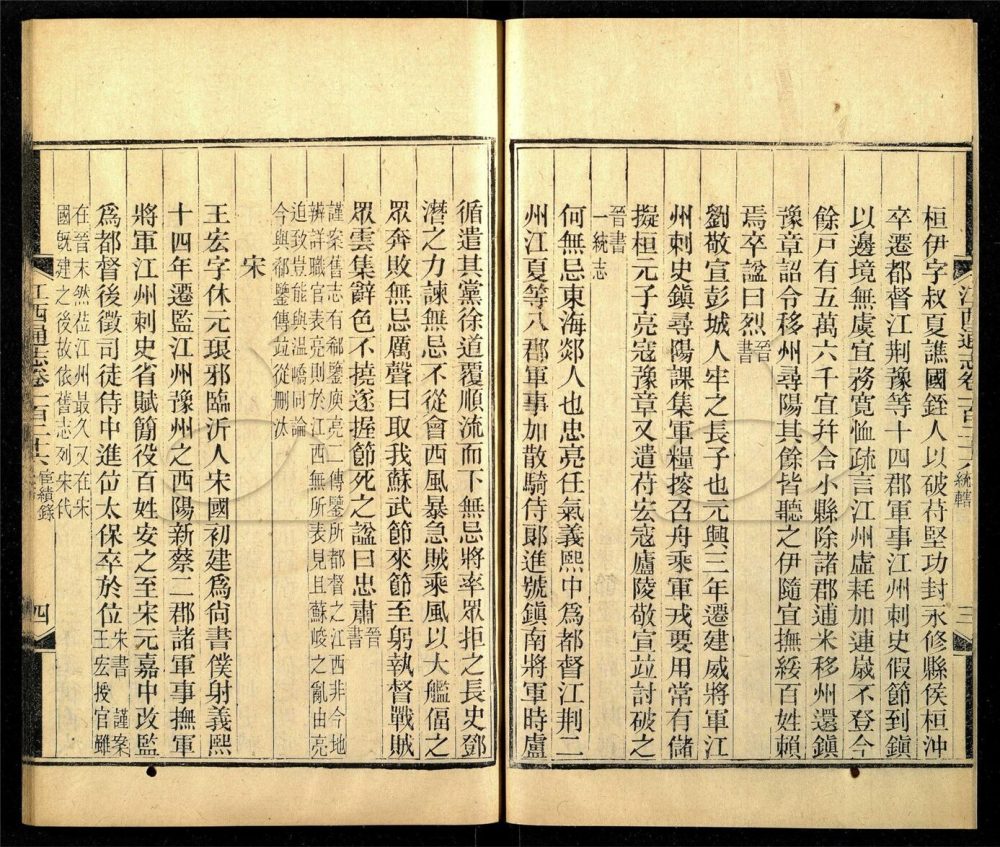 江西通志卷一百二十六 統轄 三
桓伊字叔夏譙國銍人以破苻堅功封永修縣侯桓沖
卒遷都督江荆豫等十四郡軍事江州刺史假節到鎭
以邊境無虞宜務寛恤疏言江州虛耗加連歲不登今
餘戸有五萬六千宜幷合小縣除諸郡逋米移州還鎭
豫章詔令移州尋陽其餘皆聽之伊隨宜撫綏百姓賴
焉卒謚曰烈晉書
劉敬宣彭城人牢之長子也元興三年遷建威將軍江
州刺史鎭尋陽課集軍糧搜召舟乘軍戎要用常有儲
擬桓元子亮寇豫章又遣苻宏寇廬陵敬宣竝討破之
晉書
一統志
何無忌東海郯人也忠亮任氣義熙中爲都督江荆二
州江夏等八郡軍事加散騎侍郎進號鎭南將軍時盧
循遣其黨徐道覆順流而下無忌將率眾拒之長史鄧
潛之力諫無忌不從會西風暴急賊乘風以大艦偪之
眾奔敗無忌厲聲曰取我蘇武節來節至躬執督戰賊
眾雲集辭色不撓遂握節死之謚曰忠肅晉書
謹案舊志有郗鑒庾亮二傳鑒所都督之江西非今地
辨詳職官表亮則於江西無所表見且蘇峻之亂由亮
迫致豈能與溫嶠同論
今與郗鑒傳竝從刪汰
宋
王宏字休元琅邪臨沂人宋國初建爲尙書僕射義熙
十四年遷監江州豫州之西陽新蔡二郡諸軍事撫軍
將軍江州刺史省賦簡役百姓安之至宋元嘉中改監
爲都督後徵司徒侍中進位太保卒於位宋書 謹案
王宏授官雖
在晉末然莅江州最久又在宋
國旣建之後故依舊志列宋代
江西通志卷一百二十六 宦績錄 四